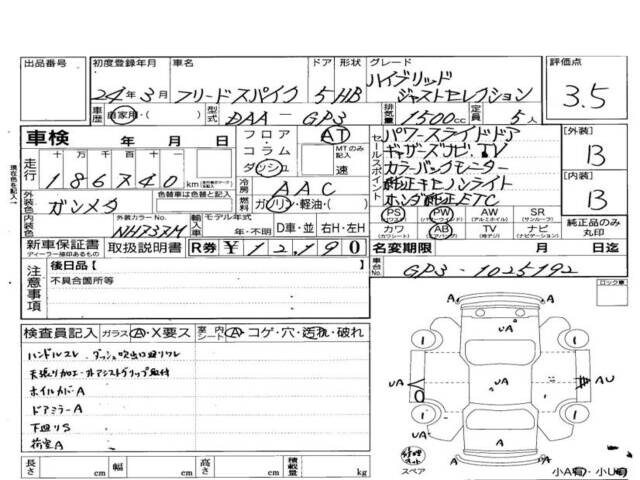 出品番号 初度登録年月 車名 ドア 形状 グレード 評価点
24年3月 フリードスパイク 5HB ハイブリッド
ジャストセレクション
3.5
車歴 自家用・( ) 型式 DAA-GP3 排気量 1500cc 定員 5人
車検 年 月 日 フロア・コラム・ダッシュ AT MTのみ記入 速
走行 十万 万 千 百 十 186740km
外装色 ガンメタ 色替車は色替と記入 冷房 AAC
燃料 ガソリン・軽油・( )
内装色 外装カラーNo. NH737M 輸入車 モデル年式 年・不明 D車・並 右H・左H
新車保証書 ディーラー捺印あるもの 取扱説明書 R券 ¥12,190
セールスポイント
パワースライドドア
ギャザズナビ.TV
カラーバックモニター
純正キセノンライト
ホンダ純正ETC
PS (パワーステ) PW (パワーウィンド) AW (アルミホイル) SR (サンルーフ)
カワ (カワシート) AB (エアバック) TV (純テレビ) ナビ (ナビゲーション)
[外装] B
[内装] B
純正品のみ丸印
名変期限 月 日迄
車台No. GP3-1025192
注意事項 後日品【 】
不具合箇所等
ロック車
検査員記入 ガラス A・X要ス 室内シート A・コゲ・穴・汚れ・破れ
ハンドルスレ、ダッシュ吹出口廻りワレ
天張り加工・オアシストグリップ取付
ホイルカバーA
ドアミラーA
下廻りS
荷室A
A A
UA
1 1
UA UA AU
1 1
UA A A
修理キット
スペア
小A有・小U有
長さ cm 幅 cm 高さ cm 積載量 kg
現在色を記入